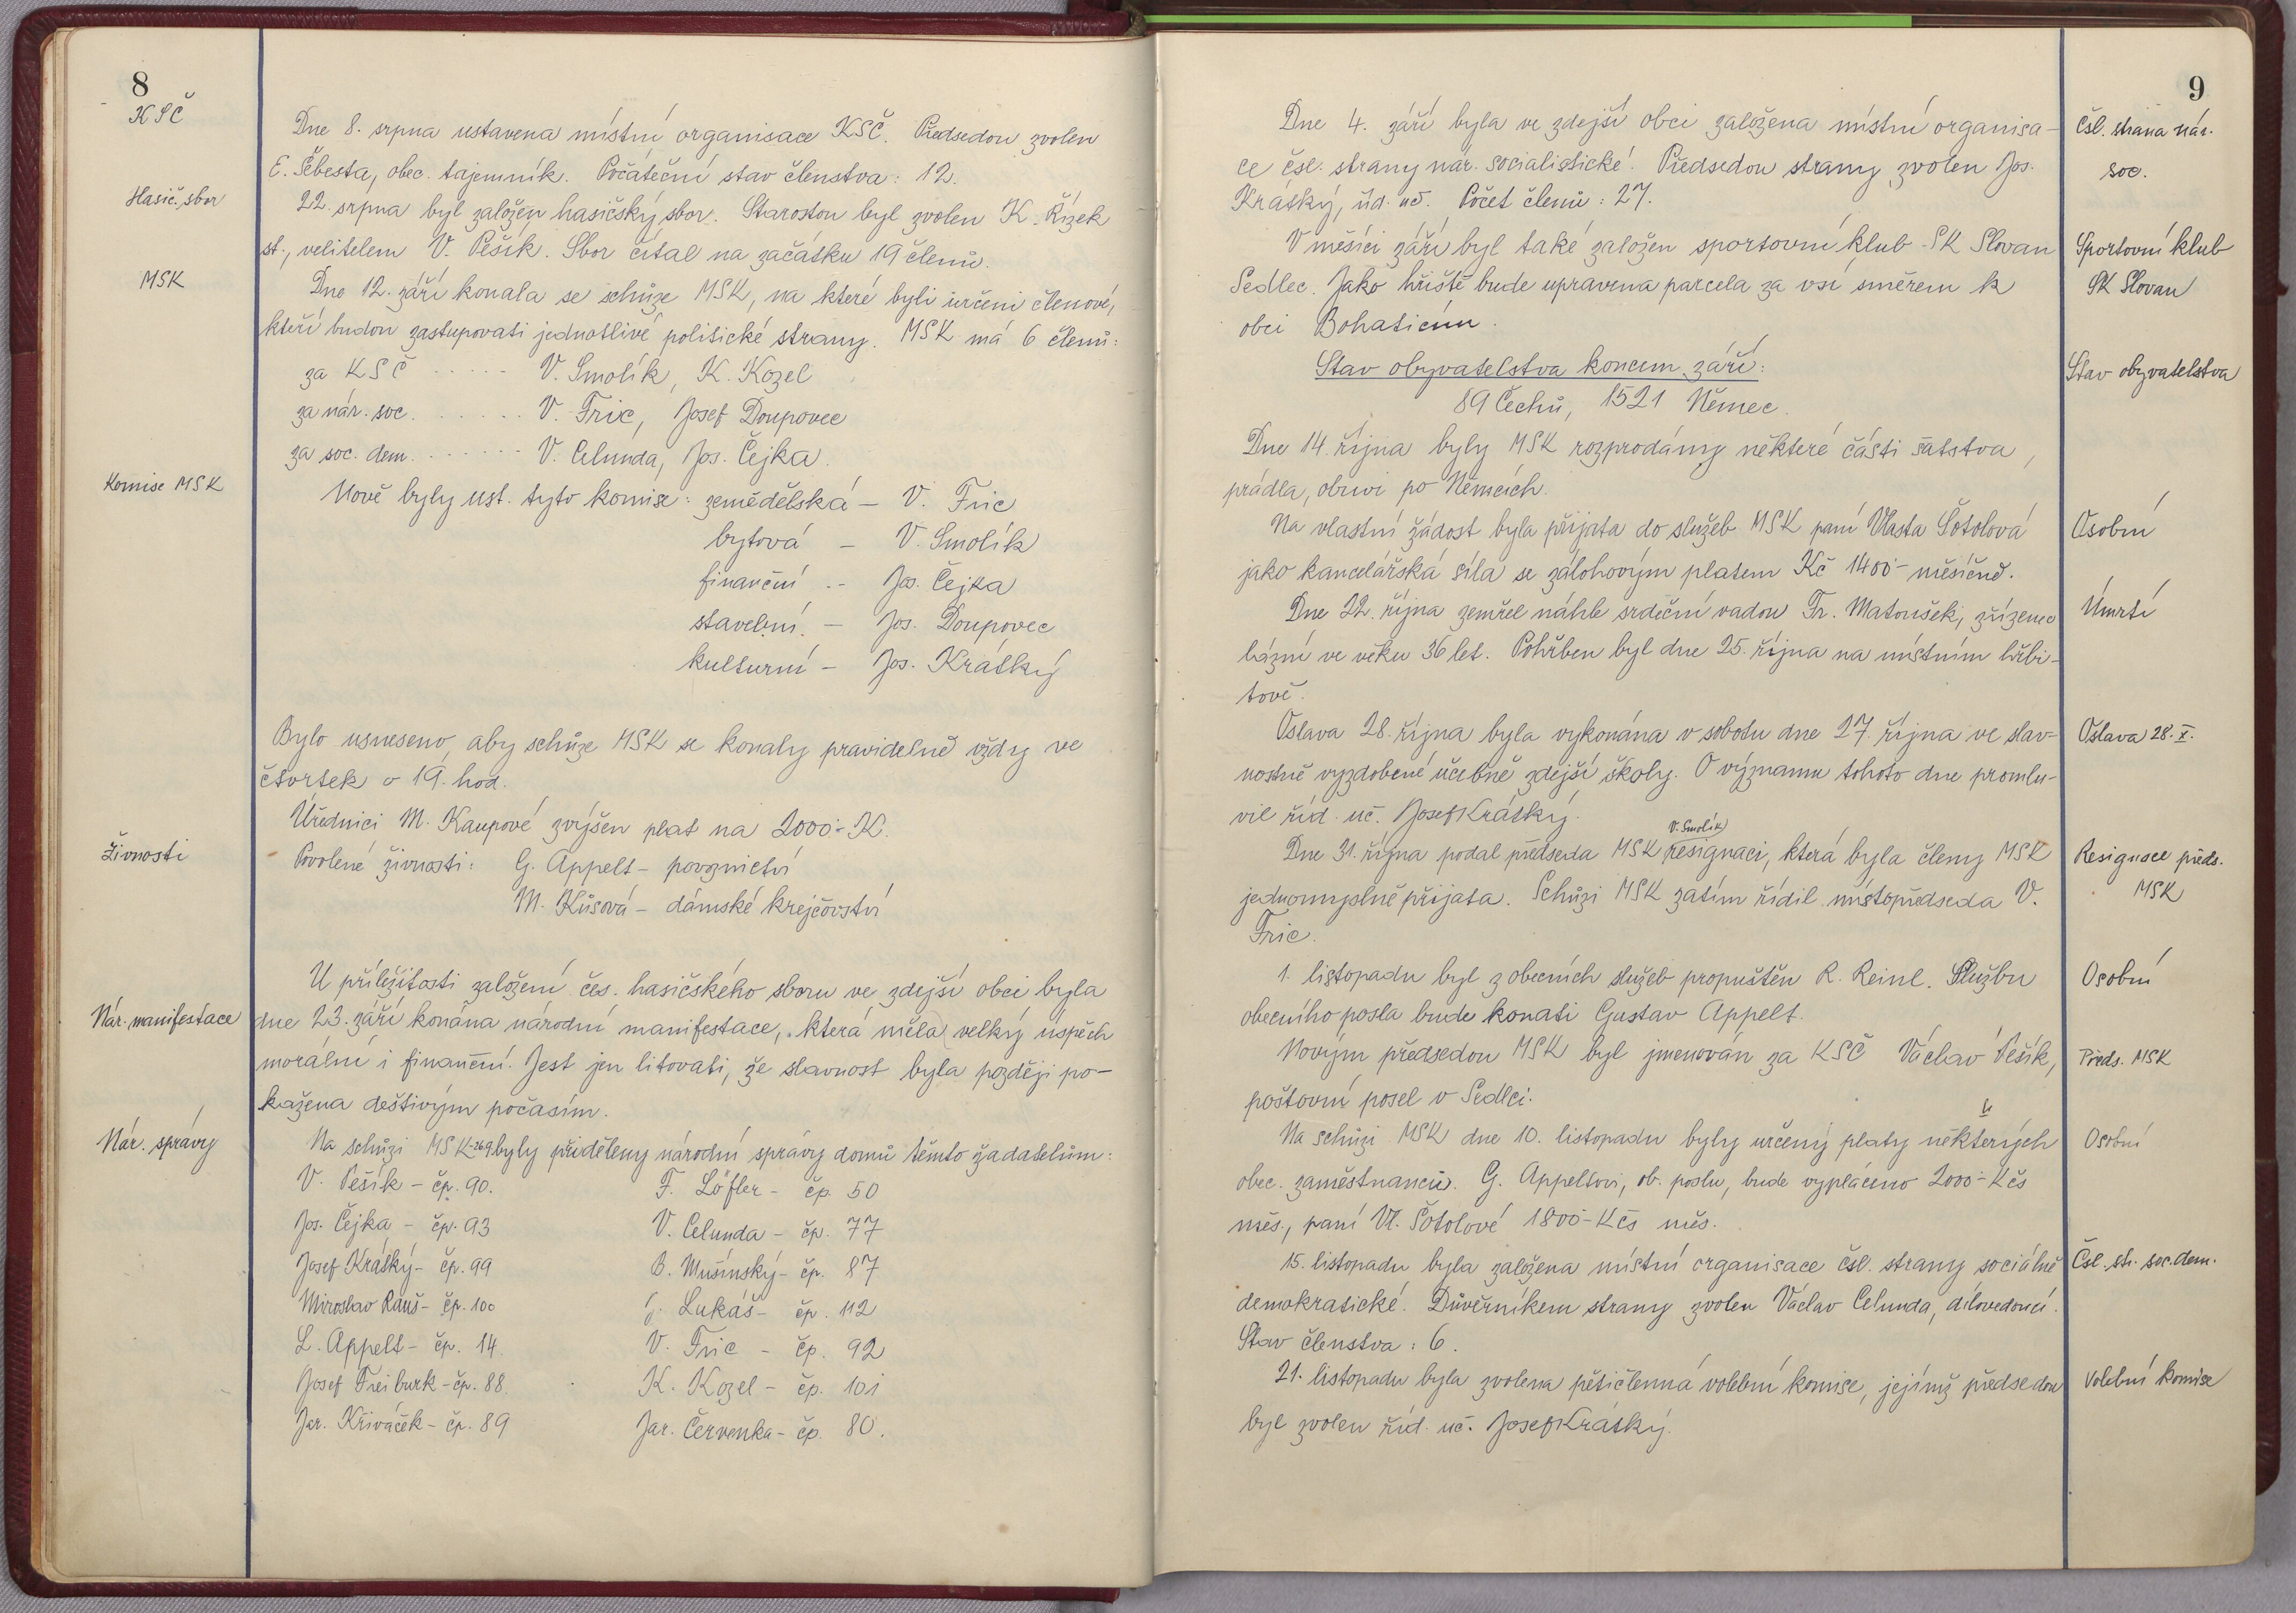 8
KSČ
Dne 8. srpna ustavena místní organisace KSČ. Předsedou zvolen
E. Šebesta, obec. tajemník. Počáteční stav členstva: 12.
Hasič. sbor
22. srpna byl založen hasičský sbor. Starostou byl zvolen K. Řízek
st., velitelem V. Pešík. Sbor čítal na začátku 19 členů.
MSK
Dne 12. září konala se schůze MSK, na které byli určeni členové,
kteří budou zastupovati jednotlivé politické strany. MSK má 6 členů:
za KSČ ..... V. Smolík, K. Kozel
za nár. soc. ...... V. Fric, Josef Doupovec
za soc. dem. ...... V. Celunda, Jos. Čejka.
Komise MSK
Nově byly ust. tyto komise: zemědělská – V. Fric
bytová – V. Smolík
finanční – Jos. Čejka
stavební – Jos. Doupovec
kulturní – Jos. Krátký
Bylo usneseno, aby schůze MSK se konaly pravidelně vždy ve
čtvrtek v 19. hod.
Úřednici M. Kaupové zvýšen plat na 2000.- K.
Živnosti
Povolené živnosti: G. Appelt – povoznictví
M. Kůsová – dámské krejčovství
U příležitosti založení čes. hasičského sboru ve zdejší obci byla
Nár. manifestace
dne 23. září konána národní manifestace, která měla velký úspěch
morální i finanční. Jest jen litovati, že slavnost byla později po-
kažena deštivým počasím.
Nár. správy
Na schůzi MSK 26/9 byly přiděleny národní správy domů těmto žadatelům:
V. Pešík – čp. 90. F. Löfler – čp. 50
Jos. Čejka – čp. 93 V. Celunda – čp. 77
Josef Krátký – čp. 99 B. Mušinský – čp. 87
Miroslav Rauš – čp. 100 Lukáš – čp. 112
L. Appelt – čp. 14. V. Fric – čp. 92
Josef Freiburk – čp. 88. K. Kozel – čp. 101
Jar. Křiváček – čp. 89 Jar. Červenka – čp. 80.
9
Dne 4. září byla ve zdejší obci založena místní organisa-
čsl. strana nár.
ce čsl. strany nár. socialistické. Předsedou strany zvolen Jos.
soc.
Krátký, říd. uč. Počet členů: 27.
V měsíci září byl také založen sportovní klub - SK Slovan
Sportovní klub
Sedlec. Jako hřiště bude upravena parcela za vsí směrem k
SK Slovan
obci Bohaticím.
Stav obyvatelstva koncem září:
Stav obyvatelstva
89 Čechů, 1521 Němec.
Dne 14. října byly MSK rozprodány některé části šatstva,
prádla, obuvi po Němcích.
Na vlastní žádost byla přijata do služeb MSK paní Vlasta Šotolová
Osobní
jako kancelářská síla se zálohovým platem Kč 1400.- měsíčně.
Dne 22. října zemřel náhle srdeční vadou Fr. Matoušek, zřízenec
Úmrtí
lázní ve věku 36 let. Pohřben byl dne 25. října na místním hřbi-
tově.
Oslava 28. října byla vykonána v sobotu dne 27. října ve slav-
Oslava 28. X.
nostně vyzdobené učebně zdejší školy. O významu tohoto dne promlu-
vil říd. uč. Josef Krátký.
V. Smolík
Dne 31. října podal předseda MSK resignaci, která byla členy MSK
Resignace předs.
jednomyslně přijata. Schůzi MSK zatím řídil místopředseda V.
MSK
Fric.
1. listopadu byl z obecních služeb propuštěn R. Reinl. Službu
Osobní
obecního posla bude konati Gustav Appelt.
Novým předsedou MSK byl jmenován za KSČ Václav Pešík,
Předs. MSK
poštovní posel v Sedlci.
Na schůzi MSK dne 10. listopadu byly určeny platy některých
Osobní
obec. zaměstnanců. G. Appeltovi, ob. poslu, bude vypláceno 2000.- Kčs
měs., paní Vl. Šotolové 1800.- Kčs měs.
15. listopadu byla založena místní organisace čsl. strany sociálně
Čsl. str. soc. dem.
demokratické. Důvěrníkem strany zvolen Václav Celunda, dílovedoucí.
Stav členstva: 6.
21. listopadu byla zvolena pětičlenná volební komise, jejímž předsedou
Volební komise
byl zvolen říd. uč. Josef Krátký.